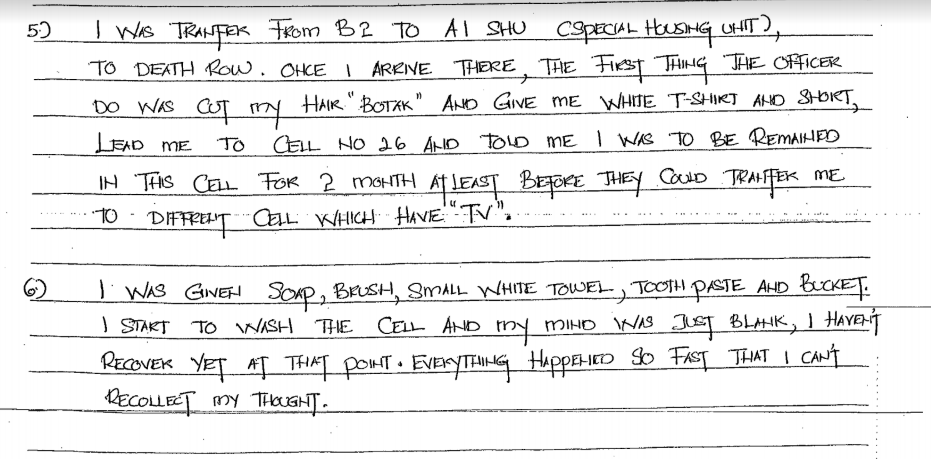 5.) I WAS TRANFER FROM B2 TO A1 SHU (SPECIAL HOUSING UNIT),
TO DEATH ROW. ONCE I ARRIVE THERE, THE FIRST THING THE OFFICER
DO WAS CUT MY HAIR "BOTAK" AND GIVE ME WHITE T-SHIRT AND SHORT,
LEAD ME TO CELL NO 26 AND TOLD ME I WAS TO BE REMAINED
IN THIS CELL FOR 2 MONTH AT LEAST BEFORE THEY COULD TRANFFER ME
TO DIFFRENT CELL WHICH HAVE "TV".
6.) I WAS GIVEN SOAP, BRUSH, SMALL WHITE TOWEL, TOOTH PASTE AND BUCKET.
I START TO WASH THE CELL AND MY MIND WAS JUST BLANK, I HAVEN'T
RECOVER YET AT THAT POINT. EVERYTHING HAPPENED SO FAST THAT I CAN'T
RECOLLECT MY THOUGHT.